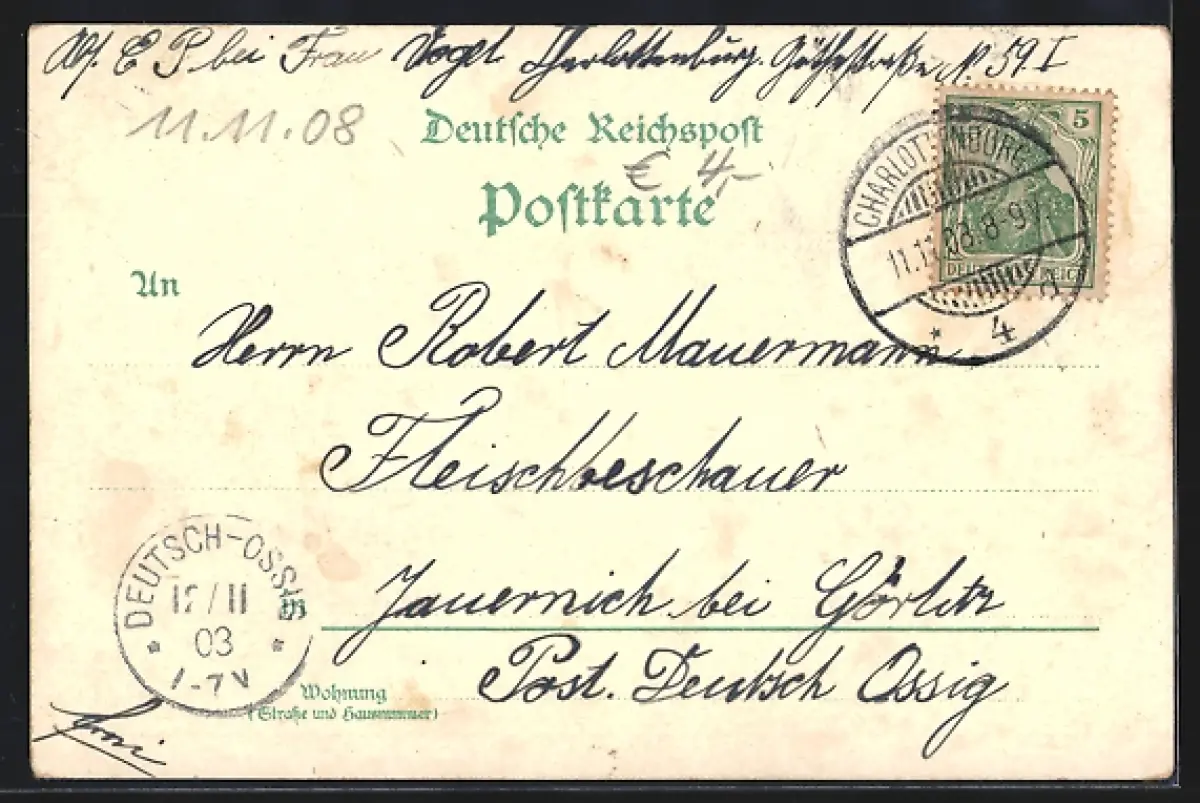 E P bei Frau Vogel Charlottenburg. Göthestraße N. 59 I
11.11.08
Deutsche Reichspost
€ 4,-
Postkarte
5
DEUTSCHES REICH
CHARLOTTENBURG
11.11.03.8-9V.
* 4 d
An
Herrn Robert Mauermann
Fleischbeschauer
Jauernich bei Görlitz
Post. Deutsch Ossig
DEUTSCH-OSSIG
12/11
03
* *
7-7V
Wohnung
(Straße und Hausnummer)